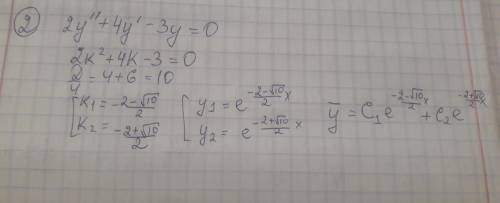 ② 2y'' + 4y' - 3y = 0
2k² + 4k - 3 = 0
D/4 = 4 + 6 = 10
[ k₁ = (-2-√10)/2 [ y₁ = e^((-2-√10)/2 x) ȳ = C₁e^((-2-√10)/2 x) + C₂e^((-2+√10)/2 x)
k₂ = (-2+√10)/2 y₂ = e^((-2+√10)/2 x)